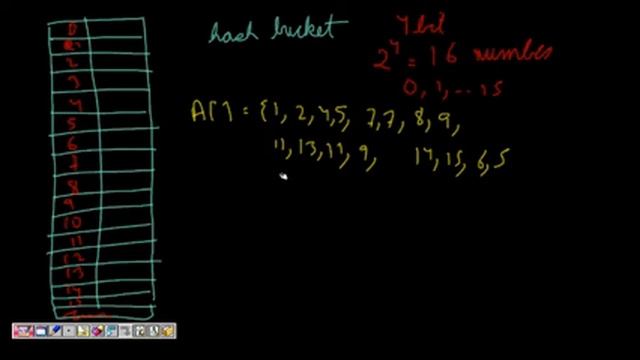 0
1
2
3
4
5
6
7
8
9
10
11
12
13
14
15
hash bucket
4 bit
2^4 = 16 numbes
0, 1, ... 15
A[ ] = {1, 2, 4, 5, 7, 7, 8, 9,
11, 13, 11, 9, 14, 15, 6, 5